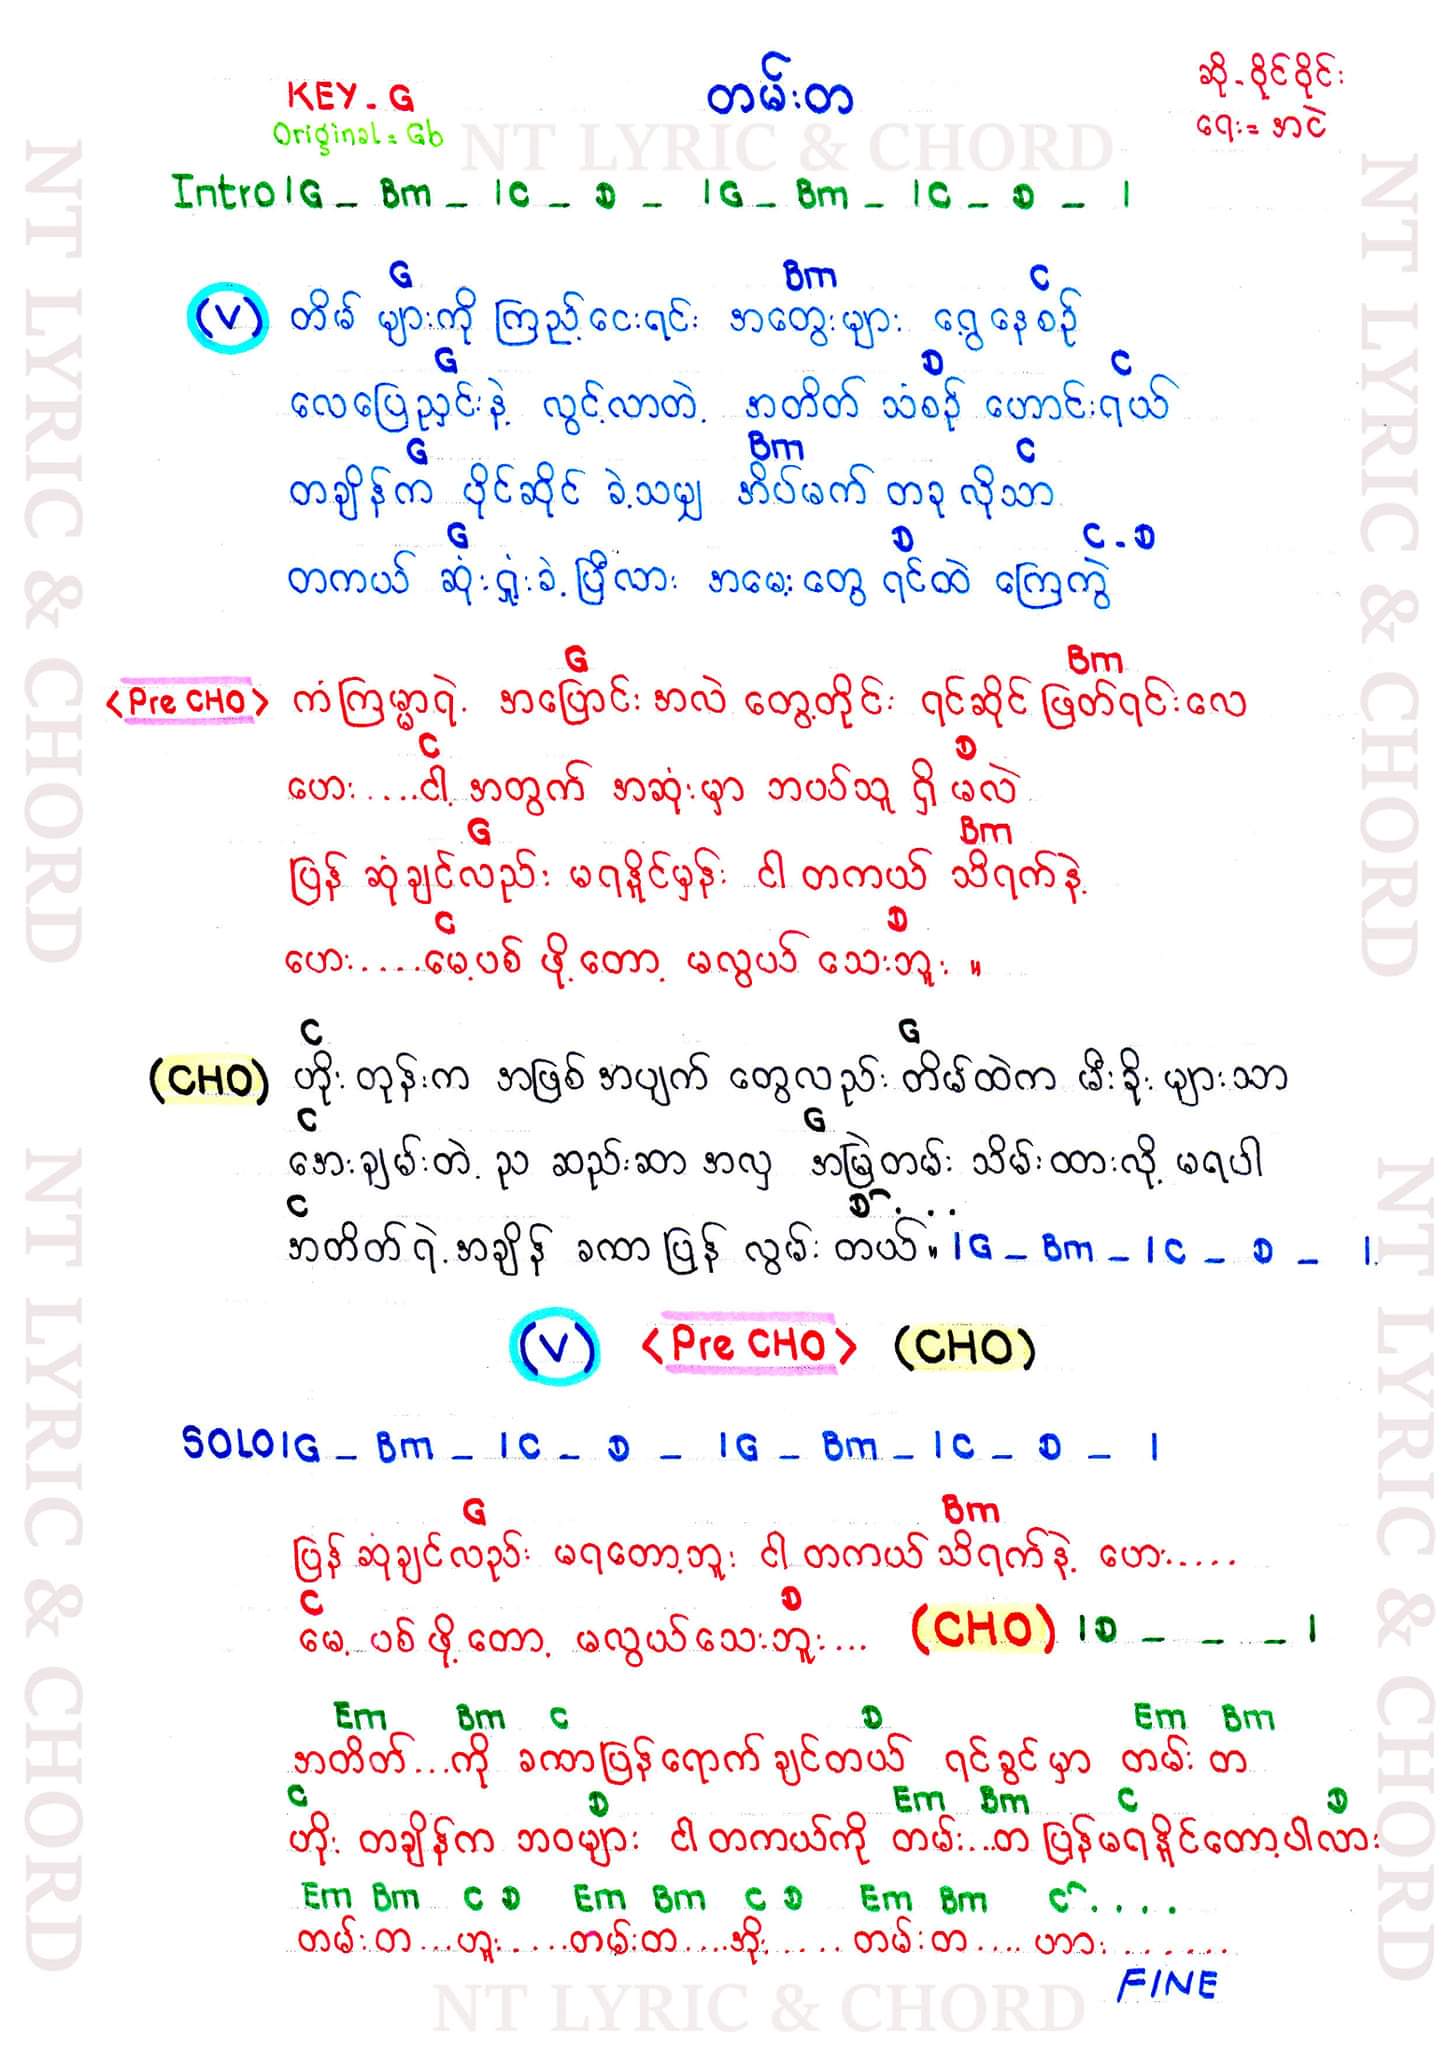 KEY - G
Original = Gb
တမ်းတ
ဆို - ဝိုင်ဝိုင်း
ရေး = အငဲ
NT LYRIC & CHORD
Intro | G _ Bm _ | C _ D _ | G _ Bm _ | C _ D _ |
G Bm C
(V) တိမ် များကို ကြည့်ငေးရင်း အတွေးများ ရွေ့နေစဉ်
G D C
လေပြေညှင်းနဲ့ လွင့်လာတဲ့ အတိတ် သံစဉ် ဟောင်းရယ်
G Bm C
တချိန်က ပိုင်ဆိုင် ခဲ့သမျှ အိပ်မက် တခု လိုသာ
G D C - D
တကယ် ဆုံးရှုံးခဲ့ ပြီလား အမေးတွေ ရင်ထဲ ကြေကွဲ
G Bm
<Pre CHO> ကံကြမ္မာရဲ့ အပြောင်းအလဲ တွေ့တိုင်း ရင်ဆိုင် ဖြတ်ရင်းလေ
C D
ဟေး....ငါ့ အတွက် အဆုံးမှာ ဘယ်သူ ရှိ မလဲ
G Bm
ပြန် ဆုံချင်လည်း မရနိုင်မှန်း ငါ တကယ် သိရက်နဲ့
C D
ဟေး.....မေ့ပစ် ဖို့တော့ မလွယ် သေးဘူး ။
C G
(CHO) ဟိုး တုန်းက အဖြစ်အပျက် တွေလည်း တိမ်ထဲက မီးခိုး များသာ
C G
အေးချမ်းတဲ့ ည ဆည်းဆာ အလှ အမြဲတမ်း သိမ်းထားလို့ မရပါ
C D...
အတိတ်ရဲ့အချိန် ခဏာ ပြန် လွမ်း တယ်။ | G _ Bm _ | C _ D _ |
(V) <Pre CHO> (CHO)
SOLO | G _ Bm _ | C _ D _ | G _ Bm _ | C _ D _ |
G Bm
ပြန် ဆုံချင်လည်း မရတော့ဘူး ငါ တကယ် သိရက်နဲ့ ဟေး.....
C D
မေ့ ပစ် ဖို့ တော့ မလွယ်သေးဘူး... (CHO) | D _ _ _ |
Em Bm C D Em Bm
အတိတ်...ကို ခဏာပြန်ရောက်ချင်တယ် ရင်ခွင်မှာ တမ်း တ
C D Em Bm C D
ဟိုး တချိန်က ဘဝများ ငါ တကယ်ကို တမ်း...တ ပြန်မရနိုင်တော့ပါလား
Em Bm C D Em Bm C D Em Bm C....
တမ်းတ...ဟူး.....တမ်းတ....အိုး.....တမ်းတ.... ဟား.......
FINE
NT LYRIC & CHORD
NT LYRIC & CHORD
NT LYRIC & CHORD
NT LYRIC & CHORD
NT LYRIC & CHORD